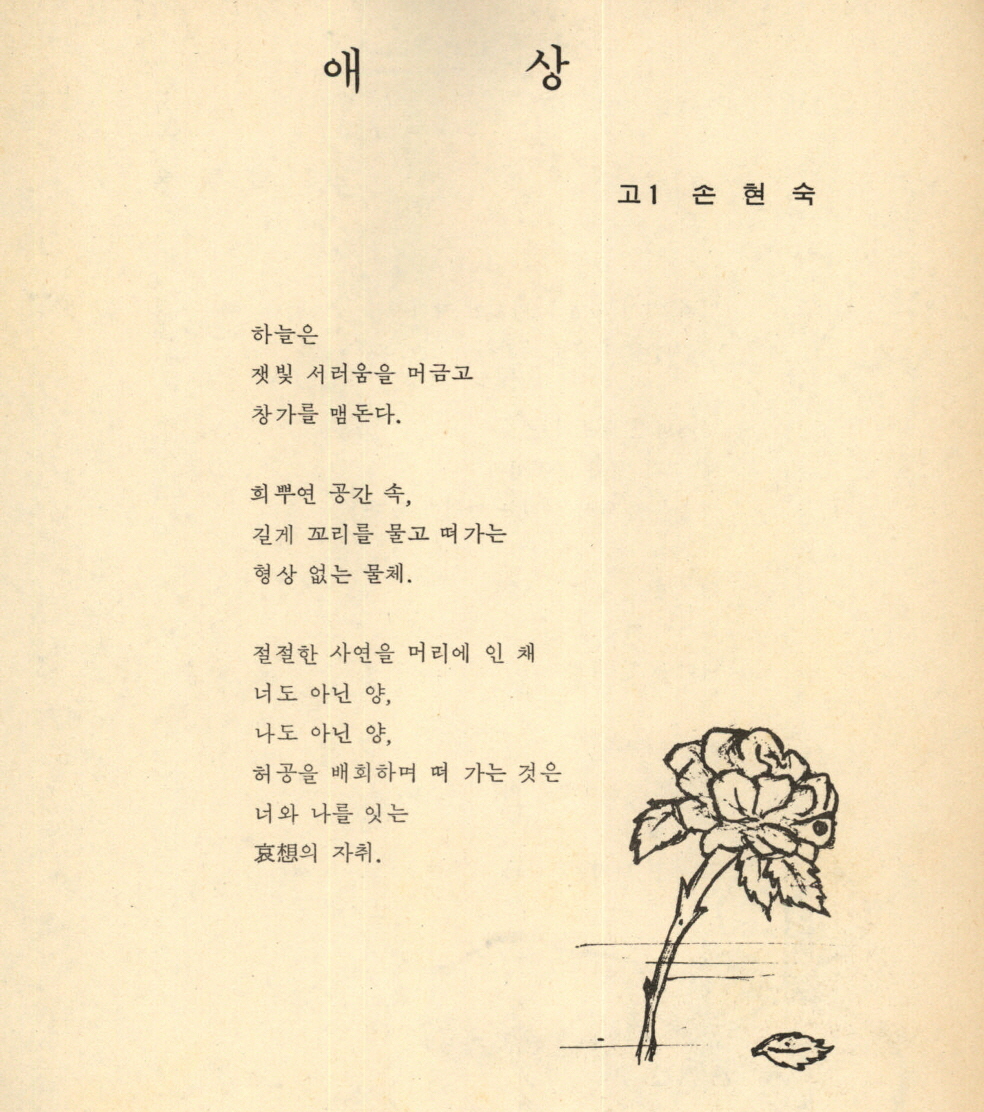 애 상
고1 손 현 숙
하늘은
잿빛 서러움을 머금고
창가를 맴돈다.
희뿌연 공간 속,
길게 꼬리를 물고 떠가는
형상 없는 물체.
절절한 사연을 머리에 인 채
너도 아닌 양,
나도 아닌 양,
허공을 배회하며 떠 가는 것은
너와 나를 잇는
哀想의 자취.